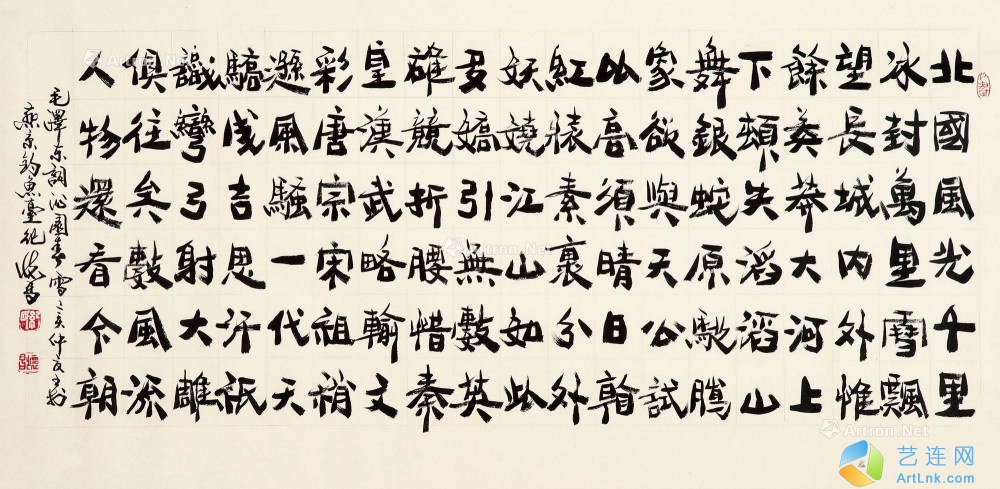 北國風光千里
冰封萬里雪飄
望長城內外惟
餘莽莽大河上
下頓失滔滔山
舞銀蛇原馳臘
象欲與天公試
比高須晴日看
紅裝素裹分外
妖嬈江山如此
多嬌引無數英
雄競折腰惜秦
皇漢武略輸文
彩唐宗宋祖稍
遜風騷一代天
驕成吉思汗祇
識彎弓射大雕
俱往矣數風流
人物還看今朝
毛澤東詞沁園春雪 亥仲夏於
京釣魚臺
Artron.Net
Artron.Net
Artron.Net
Artron.Net
艺连网
ArtLnk.com